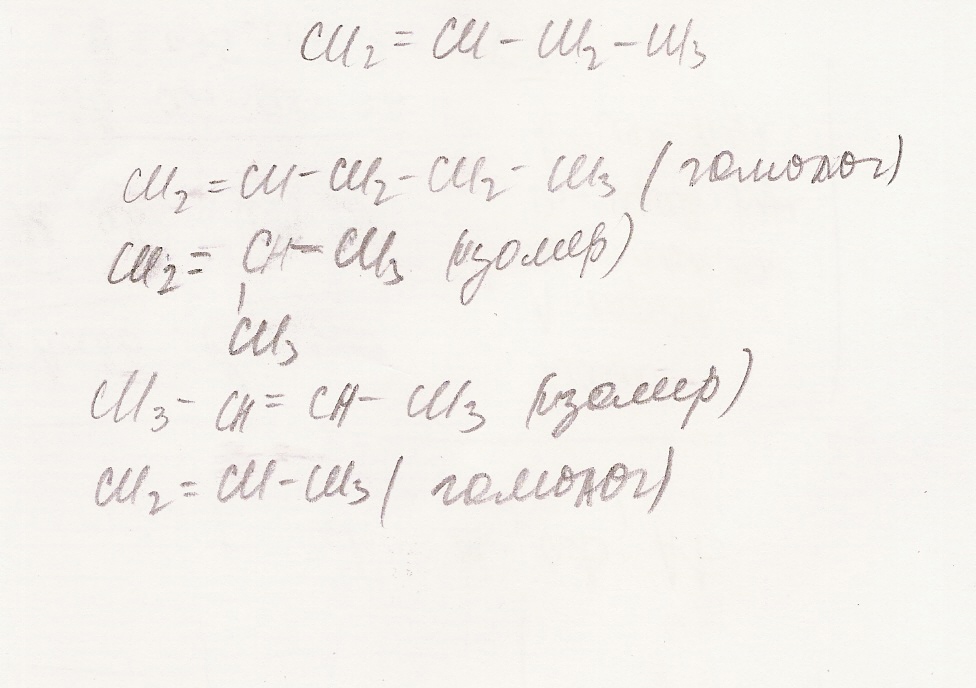 CH2 = CH - CH2 - CH3
CH2 = CH - CH2 - CH2 - CH3 (гомолог)
CH2 = CH - CH3 (изомер)
|
CH3
CH3 - CH = CH - CH3 (изомер)
CH2 = CH - CH3 (гомолог)